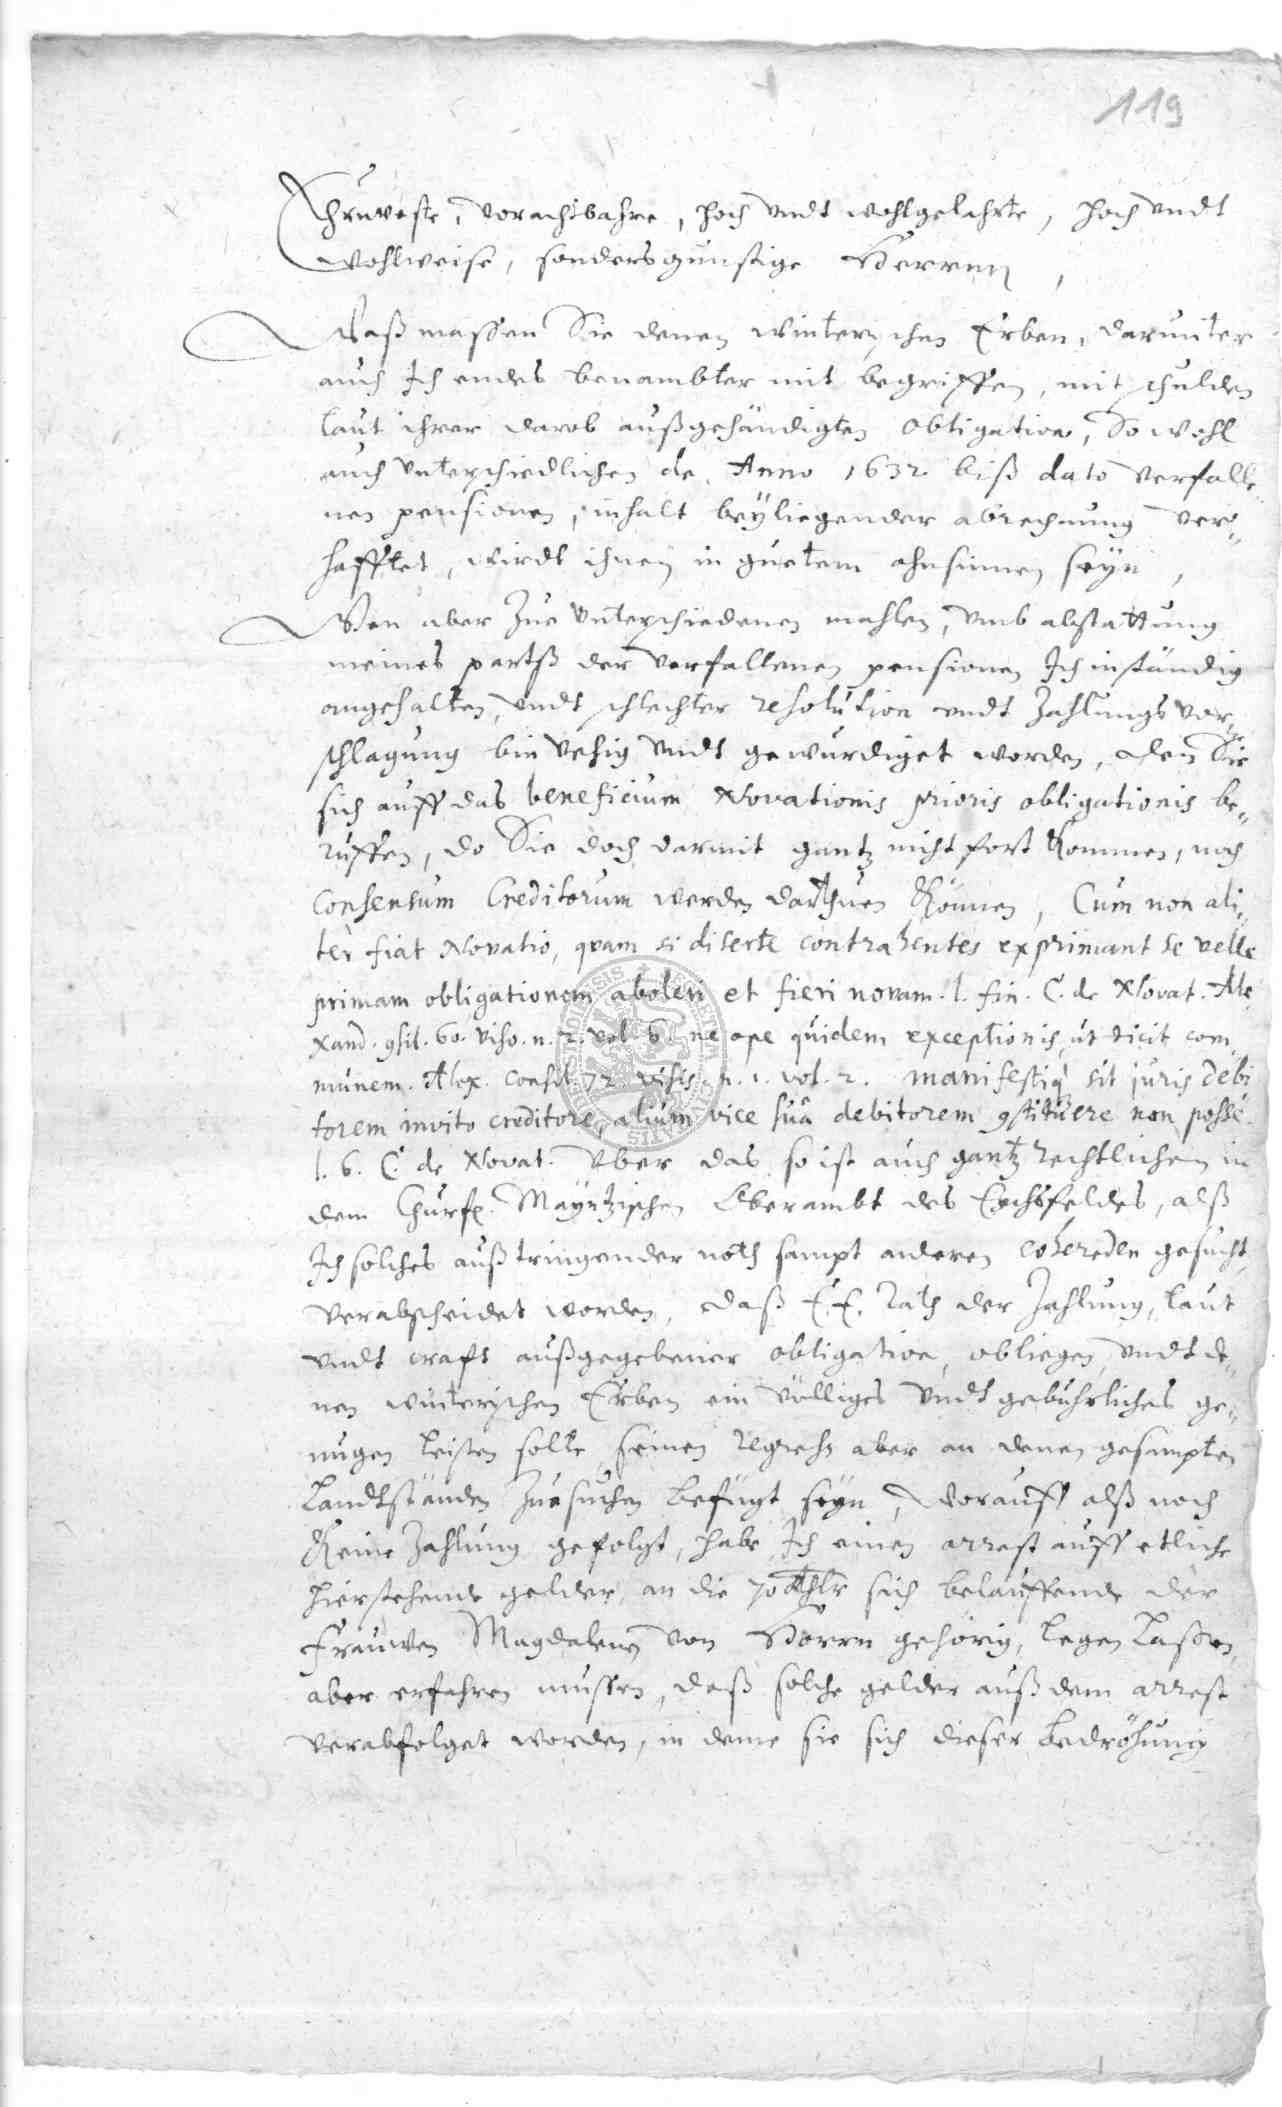 119
Ehrnveste, Vorachtbahre, hoch vndt wohlgelahrte, hoch vndt
wohlweise, sondersgünstige Herrnn,
Waßmassen Sie denen Winterischen Erben, darunter
auch Ich endes benambter mit begriffen, mit schulden
laut ihrer darob außgehändigten obligation, So wohl
auch vnterschiedlichen de Anno 1632 biß dato verfalle-
nen pensionen, inhalt beyliegender abrechnung ver-
hafftet, wirdt ihnen in guetem ahnsinnen seyn,
Wen aber zue vnterschiedenen mahlen, vmb abstattung
meines partß der verfallenen pensionen Ich inständig
angehalten, vndt schlechter resolution vndt Zahlungs vor-
schlagung bin vndt gewürdiget worden, den Sie
sich auff das beneficium Novationis prioris obligationis be-
ruffen, do Sie doch darmit gantz nicht fort kommen, noch
Consensum Creditorum werden darthuen können, Cum non ali-
ter fiat Novatio, quam si diserte contrahentes exprimant se velle
primam obligationem aboleri et fieri novam. l. fin. C. de Novat. Ale-
xand. 9sil. 60. viso. n. 2. vol. 6. ne ope quidem exceptionis, ut dicit com-
munem. Alex. Consil. 72. visis. n. 1. vol. 2. manifestiq sit juris debi
torem invito creditore, alium vice sua debitorem 9stituere non posse.
l. 6. C. de Novat. Vber das so ist auch gantz rechtlichen in
dem Churf. Mayntzischen Oberambt des Eychsfeldes, alß
Ich solches auß tringender noth sampt anderen cohereden gesucht,
verabscheidet worden, daß E. E. Rath der Zahlung, laut
vndt craft außgegebener obligation, obliegen, vndt de-
nen winterischen Erben ein völliges vndt gebührliches ge-
nugen leisten solle, seinen regress aber an denen gesampten
Landtständen zuesuchen befügt seyn, Worauff alß noch
keine Zahlung gefolgt, habe Ich einen arrest auff etliche
hierstehende gelder, an die 70 thlr sich belauffende der
Frauwen Magdalenen von Horrn gehörig, legen lassen,
aber erfahren mussen, daß solche gelder auß dem arrest
verabfolget worden, in deme sie sich dieser bedrohung